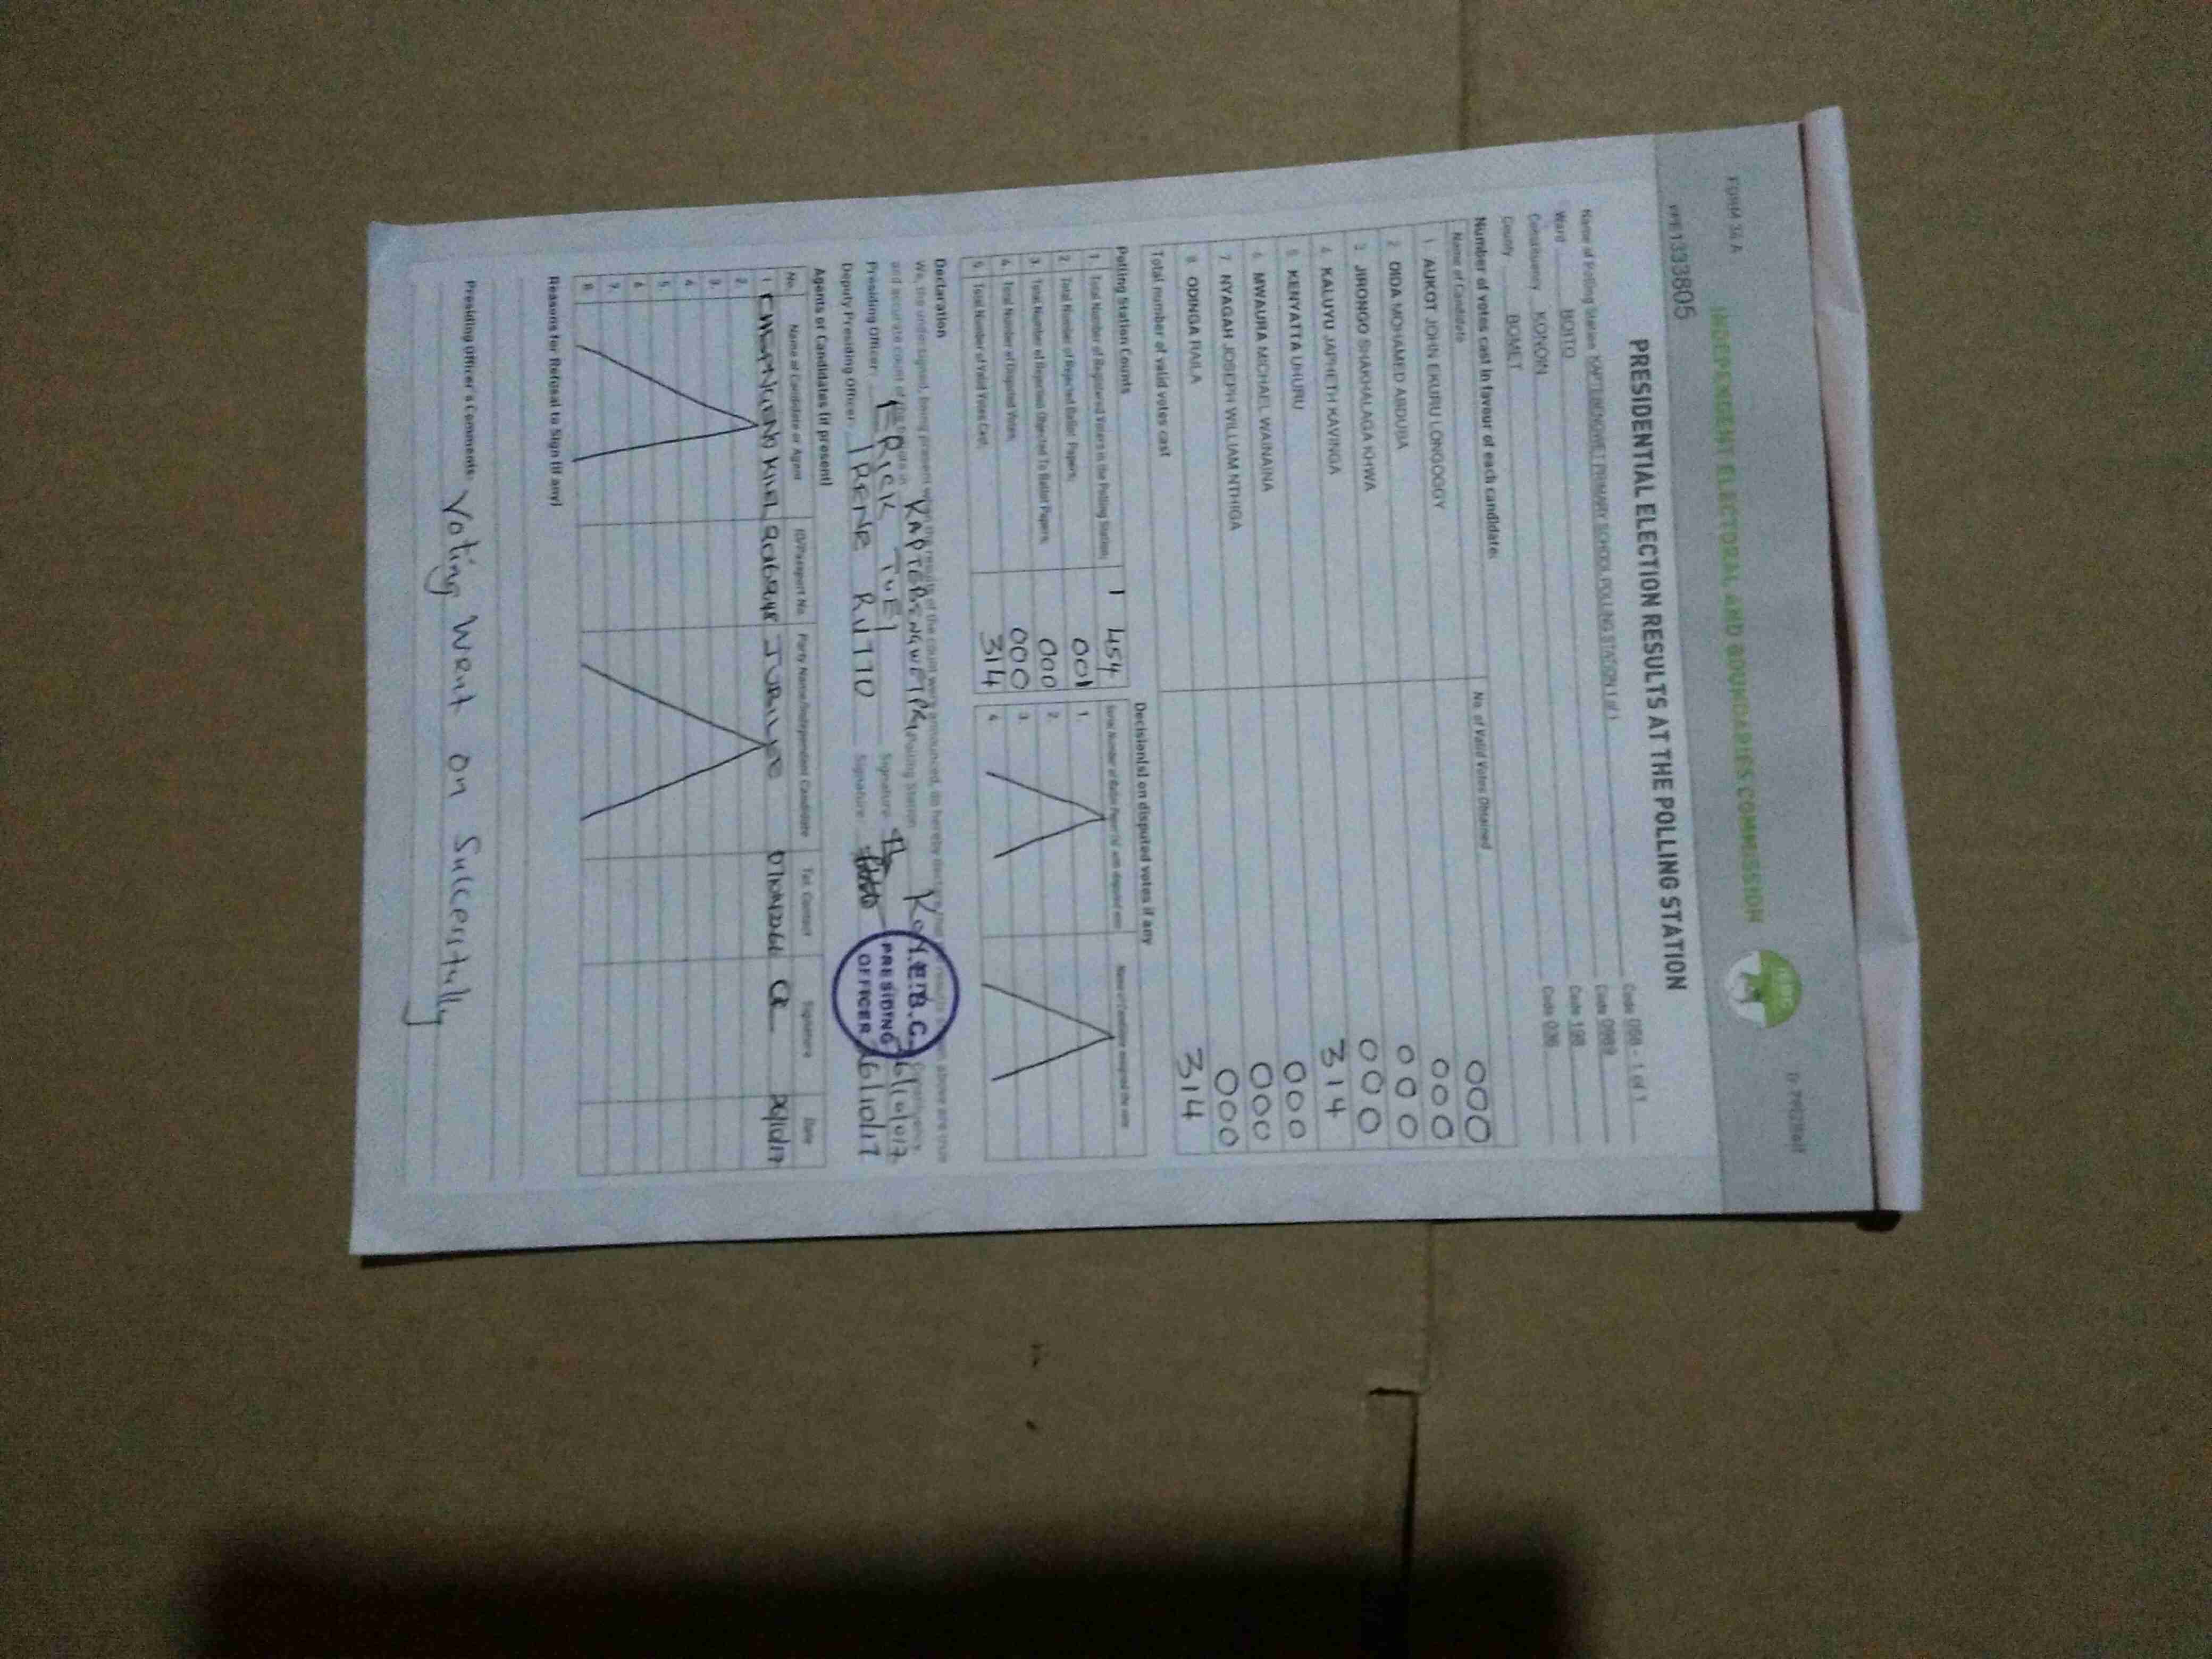 FORM 34 A
INDEPENDENT ELECTORAL AND BOUNDARIES COMMISSION
IEBC
PPE1333805
PRESIDENTIAL ELECTION RESULTS AT THE POLLING STATION
Name of Polling Station KAPTEBENGWET PRIMARY SCHOOL POLLING STATION 1 of 1 Code 058 - 1 of 1
Ward BOITO Code 0989
Constituency KONOIN Code 198
County BOMET Code 036
Number of votes cast in favour of each candidate:
Name of Candidate No. of Valid Votes Obtained
1 AUKOT JOHN EKURU LONGOGGY 000
2 DIDA MOHAMED ABDUBA 000
3 JIRONGO SHAKHALAGA KHWA 000
4 KALUYU JAPHETH KAVINGA 000
5 KENYATTA UHURU 314
6 MWAURA MICHAEL WAINAINA 000
7 NYAGAH JOSEPH WILLIAM NTHIGA 000
8 ODINGA RAILA 000
Total number of valid votes cast 314
Polling Station Counts
1. Total Number of Registered Voters in the Polling Station; 454
2. Total Number of Rejected Ballot Papers; 001
3. Total Number of Rejected Objected To Ballot Papers; 000
4. Total Number of Disputed Votes; 000
5. Total Number of Valid Votes Cast; 314
Decision(s) on disputed votes if any
Serial Number of Ballot Paper (s) with disputed vote Name of Candidate assigned the vote
1.
2.
3.
4.
Declaration
We, the undersigned, being present when the results of the count were announced, do hereby declare that the results shown above are true
and accurate count of the ballots in KAPTEBENGWET PRI Polling Station Constituency.
Presiding Officer: ERICK TUEI Signature 26/10/017
Deputy Presiding Officer: IRENE RUTTO Signature 26/10/17
I.E.B.C.
PRESIDING
OFFICER
Agents or Candidates (if present)
No. Name of Candidate or Agent ID/Passport No. Party Name/Independent Candidate Tel. Contact Signature Date
1 JUBILEE 26/10/17
2.
3.
4.
5.
6.
7.
8.
Reasons for Refusal to Sign (if any)
Presiding Officer's Comments: Voting Went on Successfully